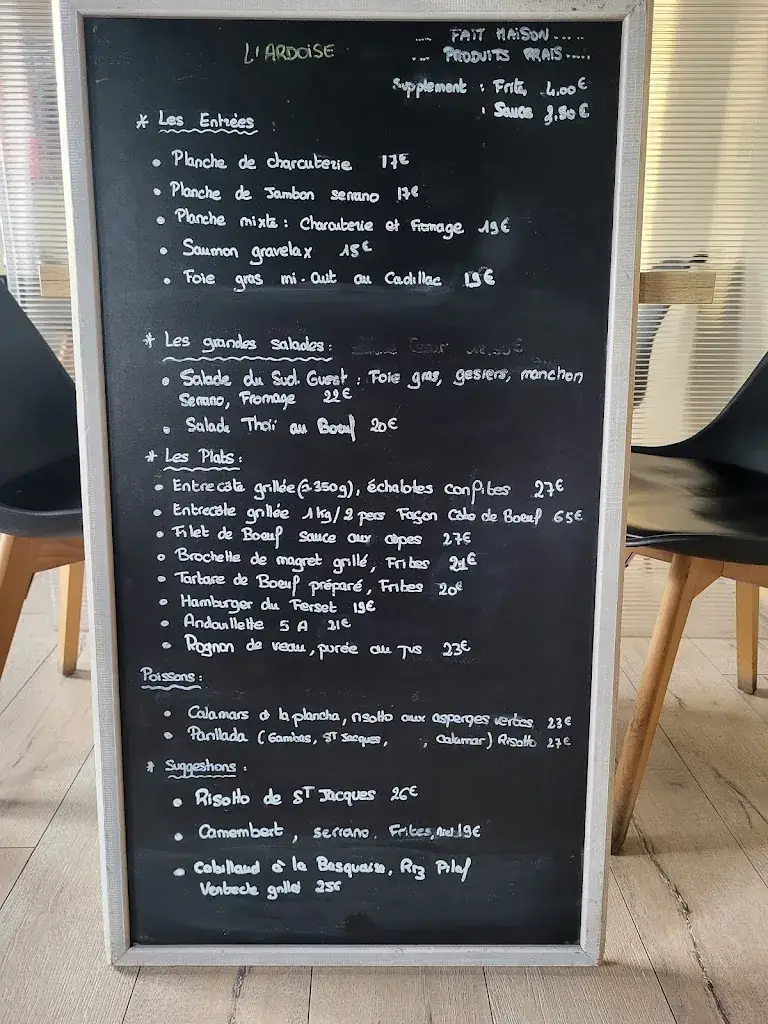 L'ARDOISE
.... FAIT MAISON ....
.... PRODUITS FRAIS.....
Supplement : Frite, 4.00€
: Sauce €
* Les Entrées
• Planche de charcuterie 17€
• Planche de Jambon serrano 17€
• Planche mixte : Charcuterie et Fromage 19€
• Saumon gravelax 15€
• Foie gras mi-cuit au Cadillac 19€
* Les grandes salades :
• Salade du Sud Ouest : Foie gras, gesiers, manchon
Serrano, Fromage 22€
• Salade Thaï au Boeuf 20€
* Les Plats :
• Entrecôte grillée (≈350g), échalotes confites 27€
• Entrecôte grillée 1kg/2 pers Façon Côte de Boeuf 65€
• Filet de Boeuf sauce aux cèpes 27€
• Brochette de magret grillé, Frites €
• Tartare de Boeuf préparé, Frites 20€
• Hamburger du Ferset 19€
• Andouillette 5 A 21€
• Rognon de veau, purée au Jus 23€
Poissons :
• Calamars à la plancha, risotto aux asperges vertes 23€
• Parillada (Gambas, ST Jacques, , calamar) Risotto 27€
* Suggestions :
• Risotto de ST Jacques 26€
• Camembert, serrano, Frites, 19€
• Cabillaud à la Basquaise, Riz Pilaf
Ventreche grillé 25€